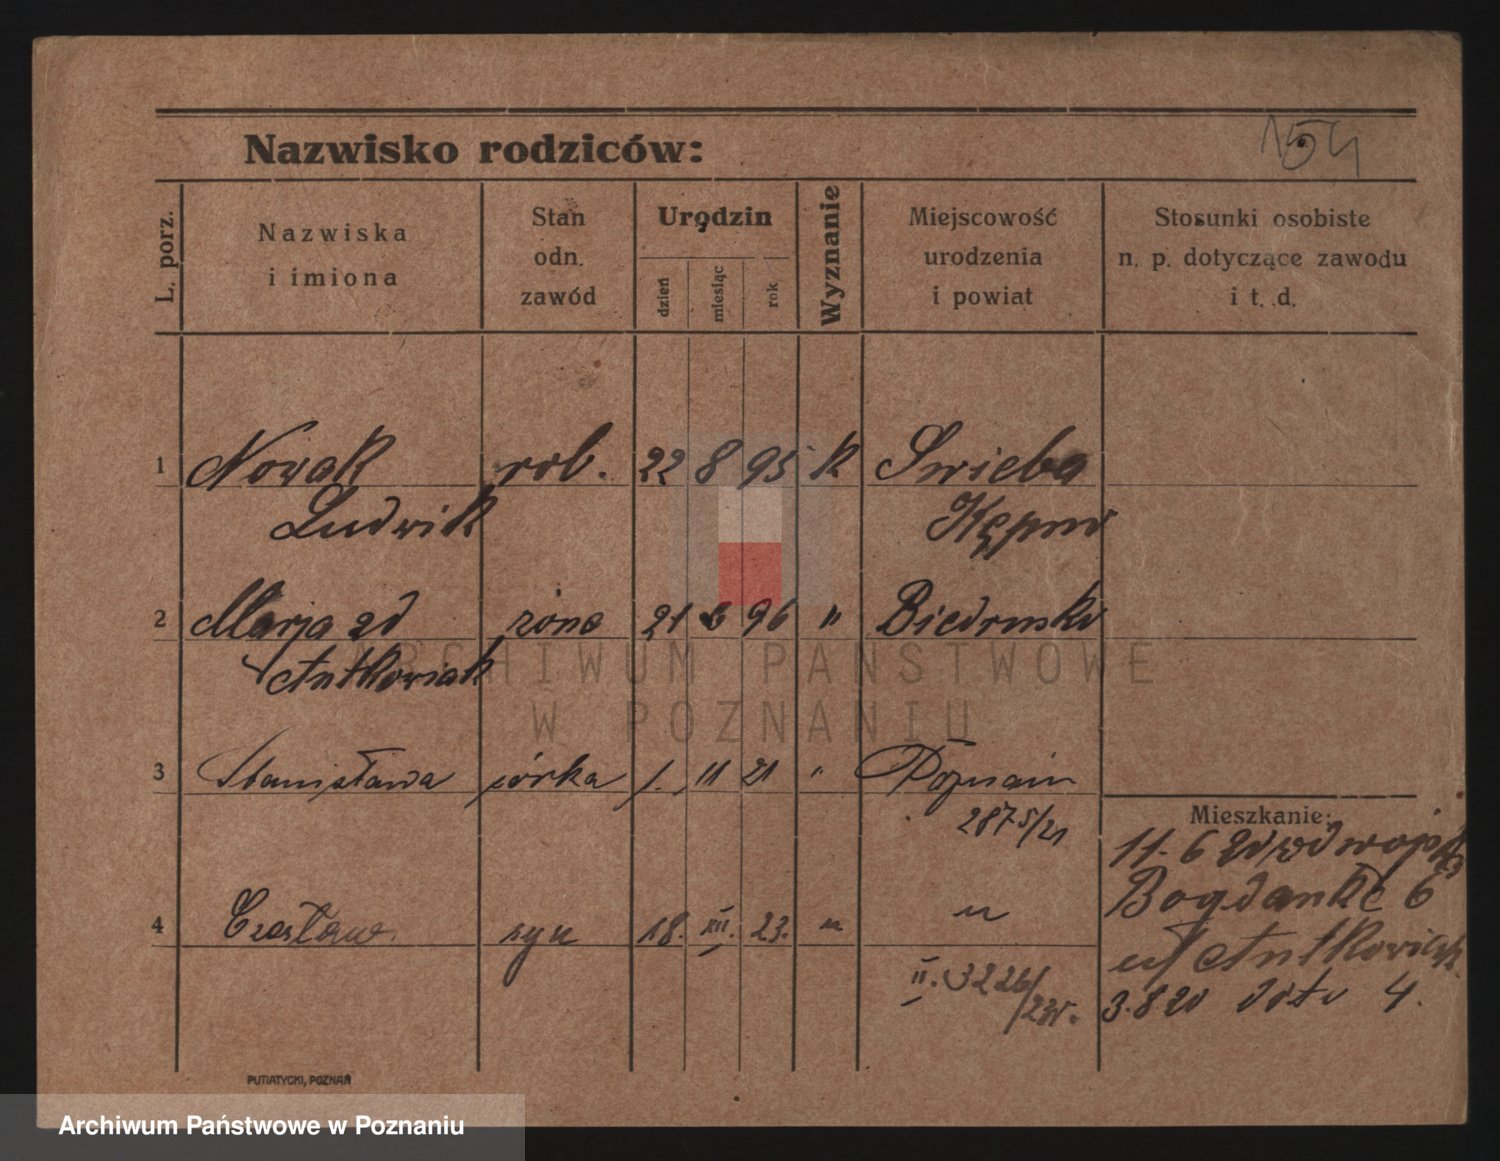 154
Nazwisko rodziców:
L. porz.
Nazwiska
i imiona
Stan
odn.
zawód
Urodzin
dzień
miesiąc
rok
Wyznanie
Miejscowość
urodzenia
i powiat
Stosunki osobiste
n. p. dotyczące zawodu
i t. d.
1 Nowak rob. 22 8 95 k Swieba
Ludwik Kępno
2 Marja zd żona 21 6 96 " Biedrusko
Antkowiak
3 Stanisława córka 1. 11 21 " Poznań
2875/21
Mieszkanie:
11. 6 20
Bogdanke 6
4 Czesław syn 18. XII. 23. " "
u/ Antkowiak
II. 3226/23
3.8 20 4.
PUTIATYCKI, POZNAŃ
ARCHIWUM PAŃSTWOWE
W POZNANIU
Archiwum Państwowe w Poznaniu